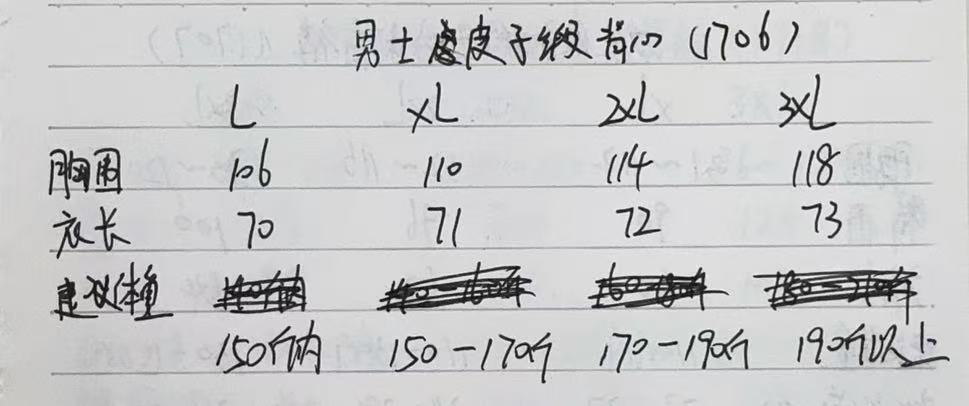 男士皮子缎背心(1706)
L XL 2XL 3XL
胸围 106 110 114 118
衣长 70 71 72 73
建议体重
150斤内 150-170斤 170-190斤 190斤以上